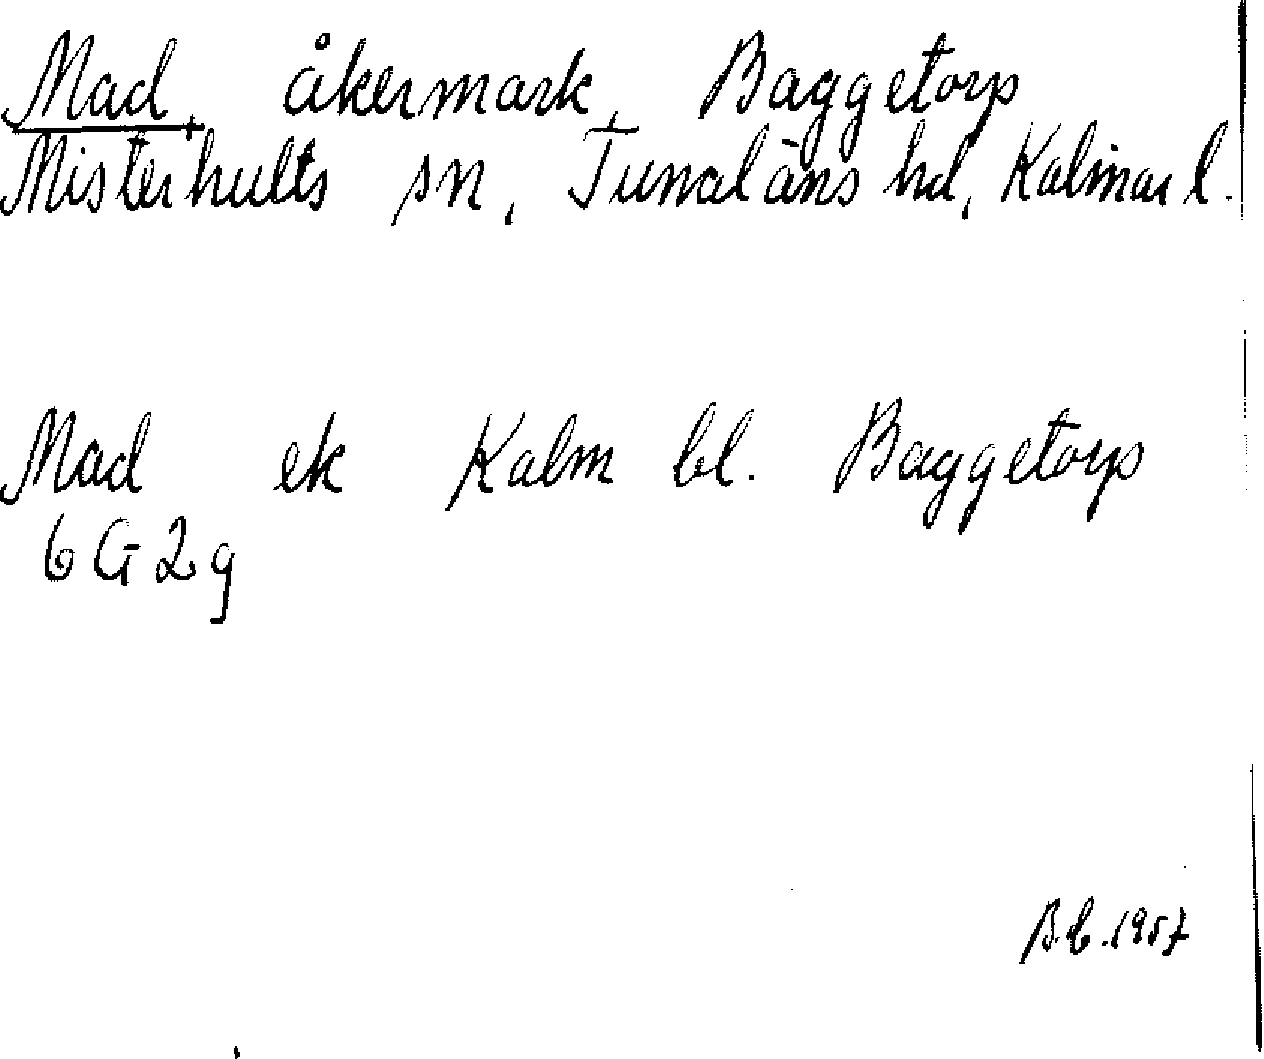 Mad, åkermark, Baggetorp
Misterhults sn, Tunaläns hd, Kalmar l.
Mad ek Kalm bl. Baggetorp
6G2g
B.C.1957